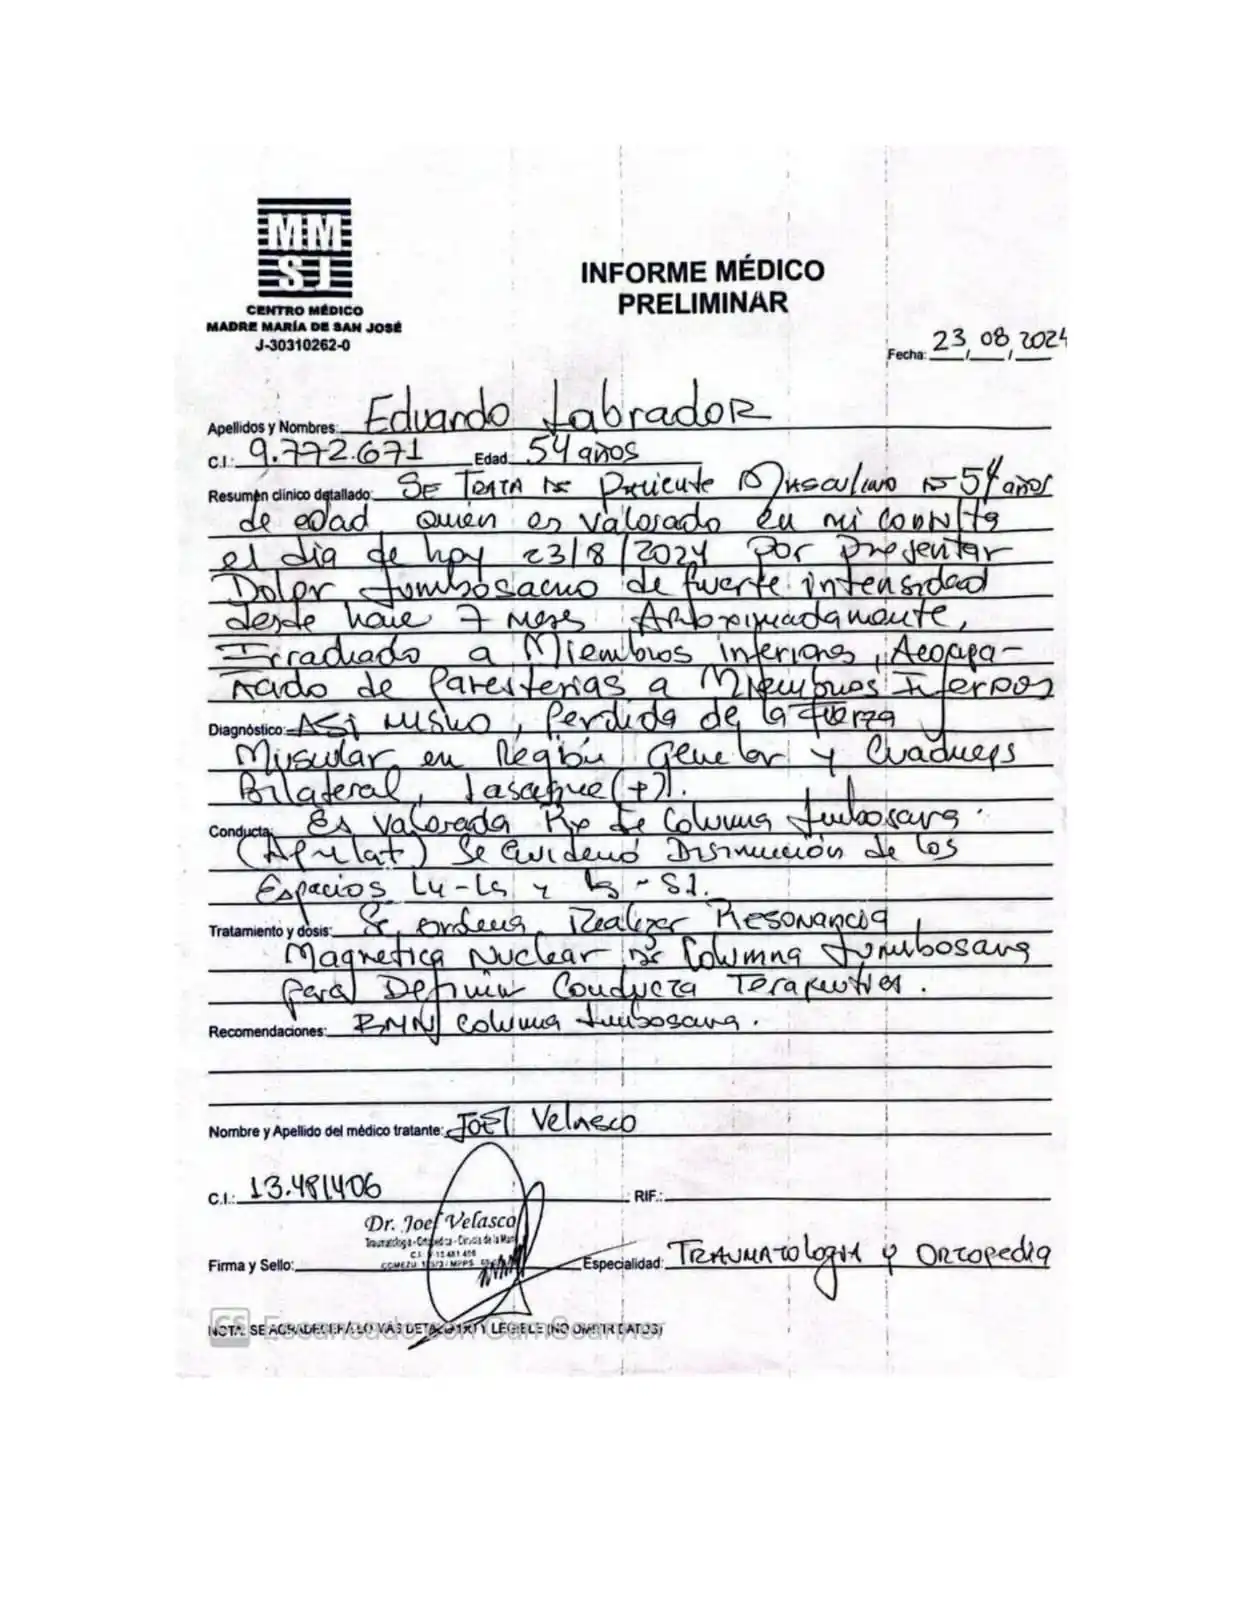 MM
SJ
CENTRO MÉDICO
MADRE MARÍA DE SAN JOSÉ
J-30310262-0
INFORME MÉDICO
PRELIMINAR
Fecha: 23/08/2024
Apellidos y Nombres: Eduardo Labrador
C.I.: 9.772.671 Edad: 54 años
Resumen clinico detallado: SE TRATA DE Paciente Masculino DE 54 años
de edad quien es valorado en mi consulta
el dia de hoy 23/8/2024 por presentar
Dolor Lumbosacro de fuerte intensidad
desde hace 7 meses Aproximadamente,
Irradiado a Miembros inferiores, Acompa-
ñado de Parestesias a Miembros Inferiores
Diagnóstico: ASi mismo, Perdida de la fuerza
Muscular en Región Gemelar y Cuadriceps
Bilateral, Lasegue (+).
Conducta: Es valorada Rx de Columna Lumbosacra.
(Ap y lat) Se Evidenció Disminución de los
Espacios L4-L5 y L5-S1.
Tratamiento y dosis: Se ordena Realizar Resonancia
Magnetica Nuclear de Columna Lumbosacra
para Definir Conducta Terapeutica.
Recomendaciones: RMN Columna Lumbosacra.
Nombre y Apellido del médico tratante: JOEL Velasco
C.I.: 13.481406 RIF.:
Dr. Joel Velasco
Traumatología-Ortopedia-Cirugía de la Mano
Firma y Sello: Especialidad: TRAUMAToloGIA y ORTOpedia
NOTA: SE AGRADECE HACERLO MÁS DETALLADO Y LEGIBLE (NO OMITIR DATOS)
CS Escaneado con CamScanner